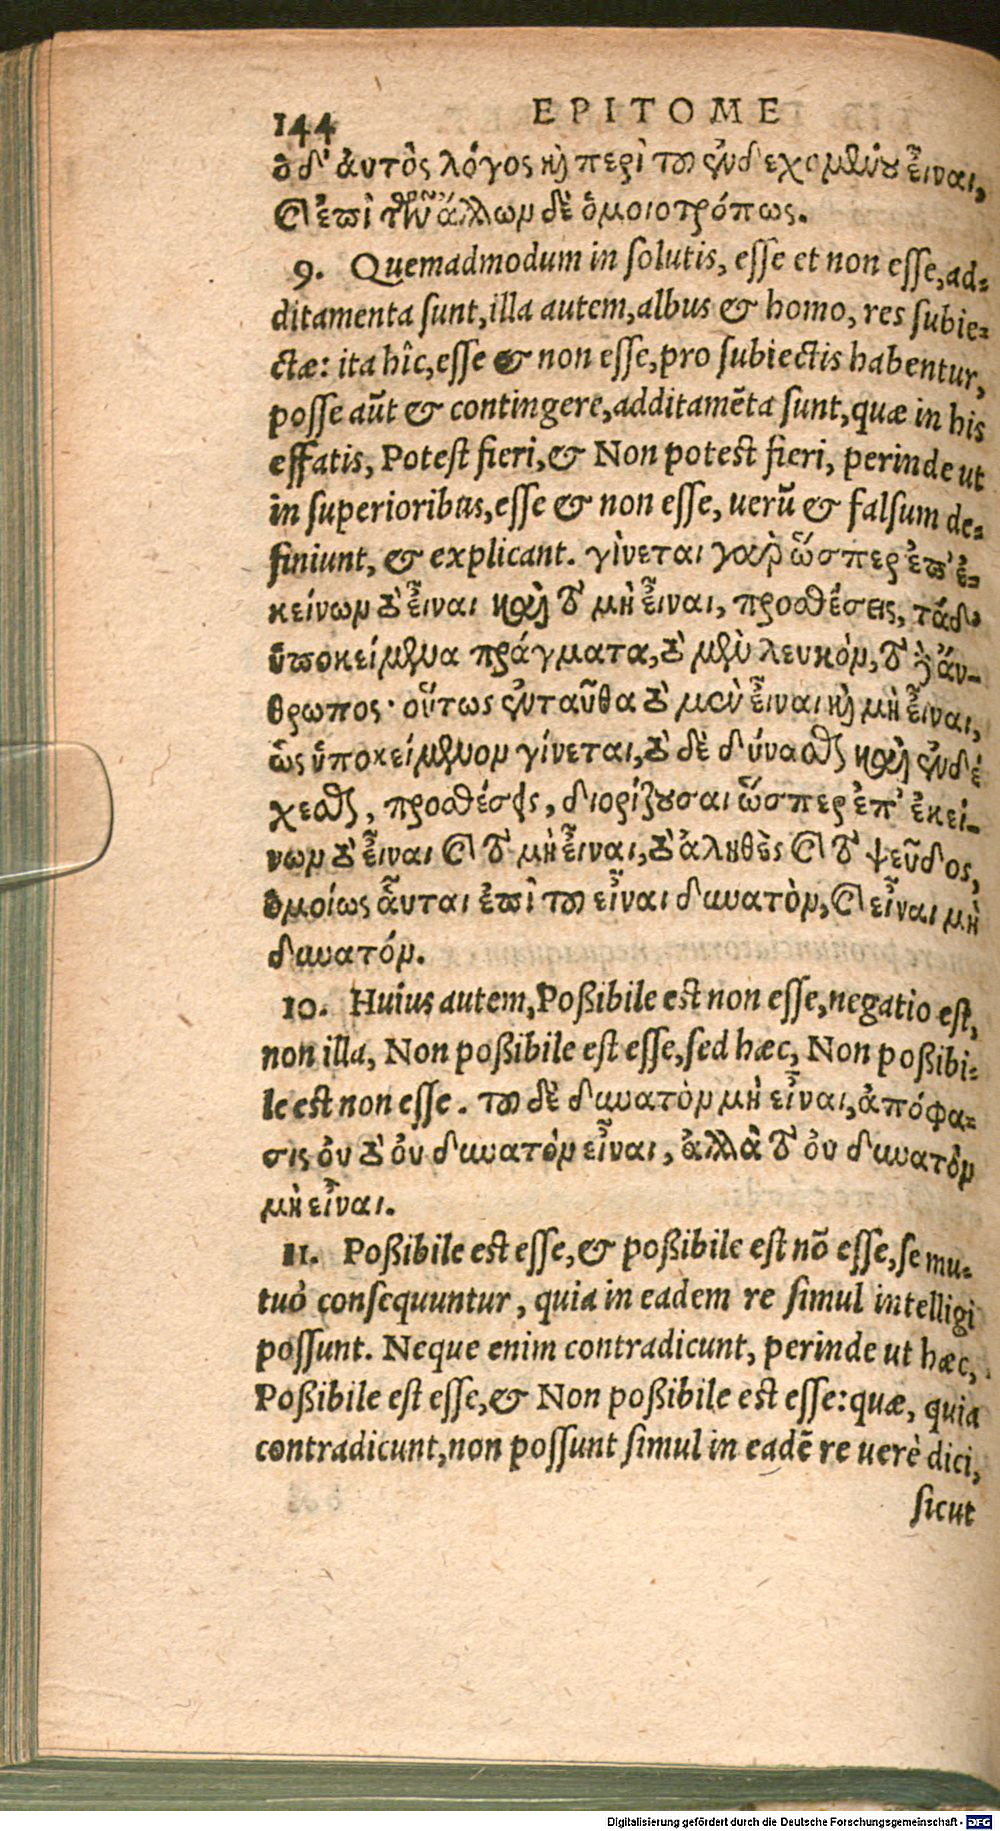 144 EPITOME
ὁ δ' αὐτὸς λόγος καὶ περὶ τοῦ ἐνδεχομένου εἶναι,
καὶ ἐπὶ τῶν ἄλλων δὲ ὁμοιοτρόπως.
9. Quemadmodum in solutis, eſſe et non eſſe, ad-
ditamenta ſunt, illa autem, albus & homo, res ſubie-
ctæ: ita hîc, eſſe & non eſſe, pro ſubiectis habentur,
poſſe aũt & contingere, additamẽta ſunt, quæ in his
effatis, Poteſt fieri, & Non poteſt fieri, perinde ut
in ſuperioribus, eſſe & non eſſe, uerũ & falſum de-
finiunt, & explicant. γίνεται γὰρ ὥσπερ ἐπ' ἐ-
κείνων τὸ εἶναι καὶ τὸ μὴ εἶναι, προσθέσεις, τὰ δ'
ὑποκείμενα πράγματα, τὸ μὲν λευκὸν, τὸ δ' ἄν-
θρωπος· οὕτως ἐνταῦθα τὸ μὲν εἶναι καὶ μὴ εἶναι,
ὡς ὑποκείμενον γίνεται, τὸ δὲ δύνασθαι καὶ ἐνδέ
χεσθαι, προσθέσεις, διορίζουσαι ὥσπερ ἐπ' ἐκεί-
νων τὸ εἶναι καὶ τὸ μὴ εἶναι, τὸ ἀληθὲς καὶ τὸ ψεῦδος,
ὁμοίως αὗται ἐπὶ τοῦ εἶναι δυνατὸν, καὶ εἶναι μὴ
δυνατόν.
10. Huius autem, Poßibile est non eſſe, negatio eſt,
non illa, Non poßibile eſt eſſe, ſed hæc, Non poßibi-
le est non eſſe. τοῦ δὲ δυνατὸν μὴ εἶναι, ἀπόφα-
σις οὐ τὸ οὐ δυνατὸν εἶναι, ἀλλὰ τὸ οὐ δυνατὸν
μὴ εἶναι.
11. Poßibile est eſſe, & poßibile eſt nõ eſſe, ſe mu-
tuò conſequuntur, quia in eadem re ſimul intelligi
poſſunt. Neque enim contradicunt, perinde ut hæc,
Poßibile eſt eſſe, & Non poßibile est eſſe: quæ, quia
contradicunt, non poſſunt ſimul in eadẽ re uerè dici,
ſicut
Digitalisierung gefördert durch die Deutsche Forschungsgemeinschaft - DFG